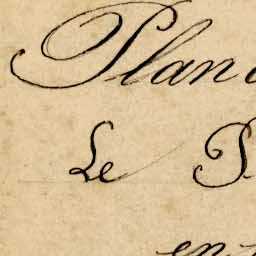 Plan
Le P
en